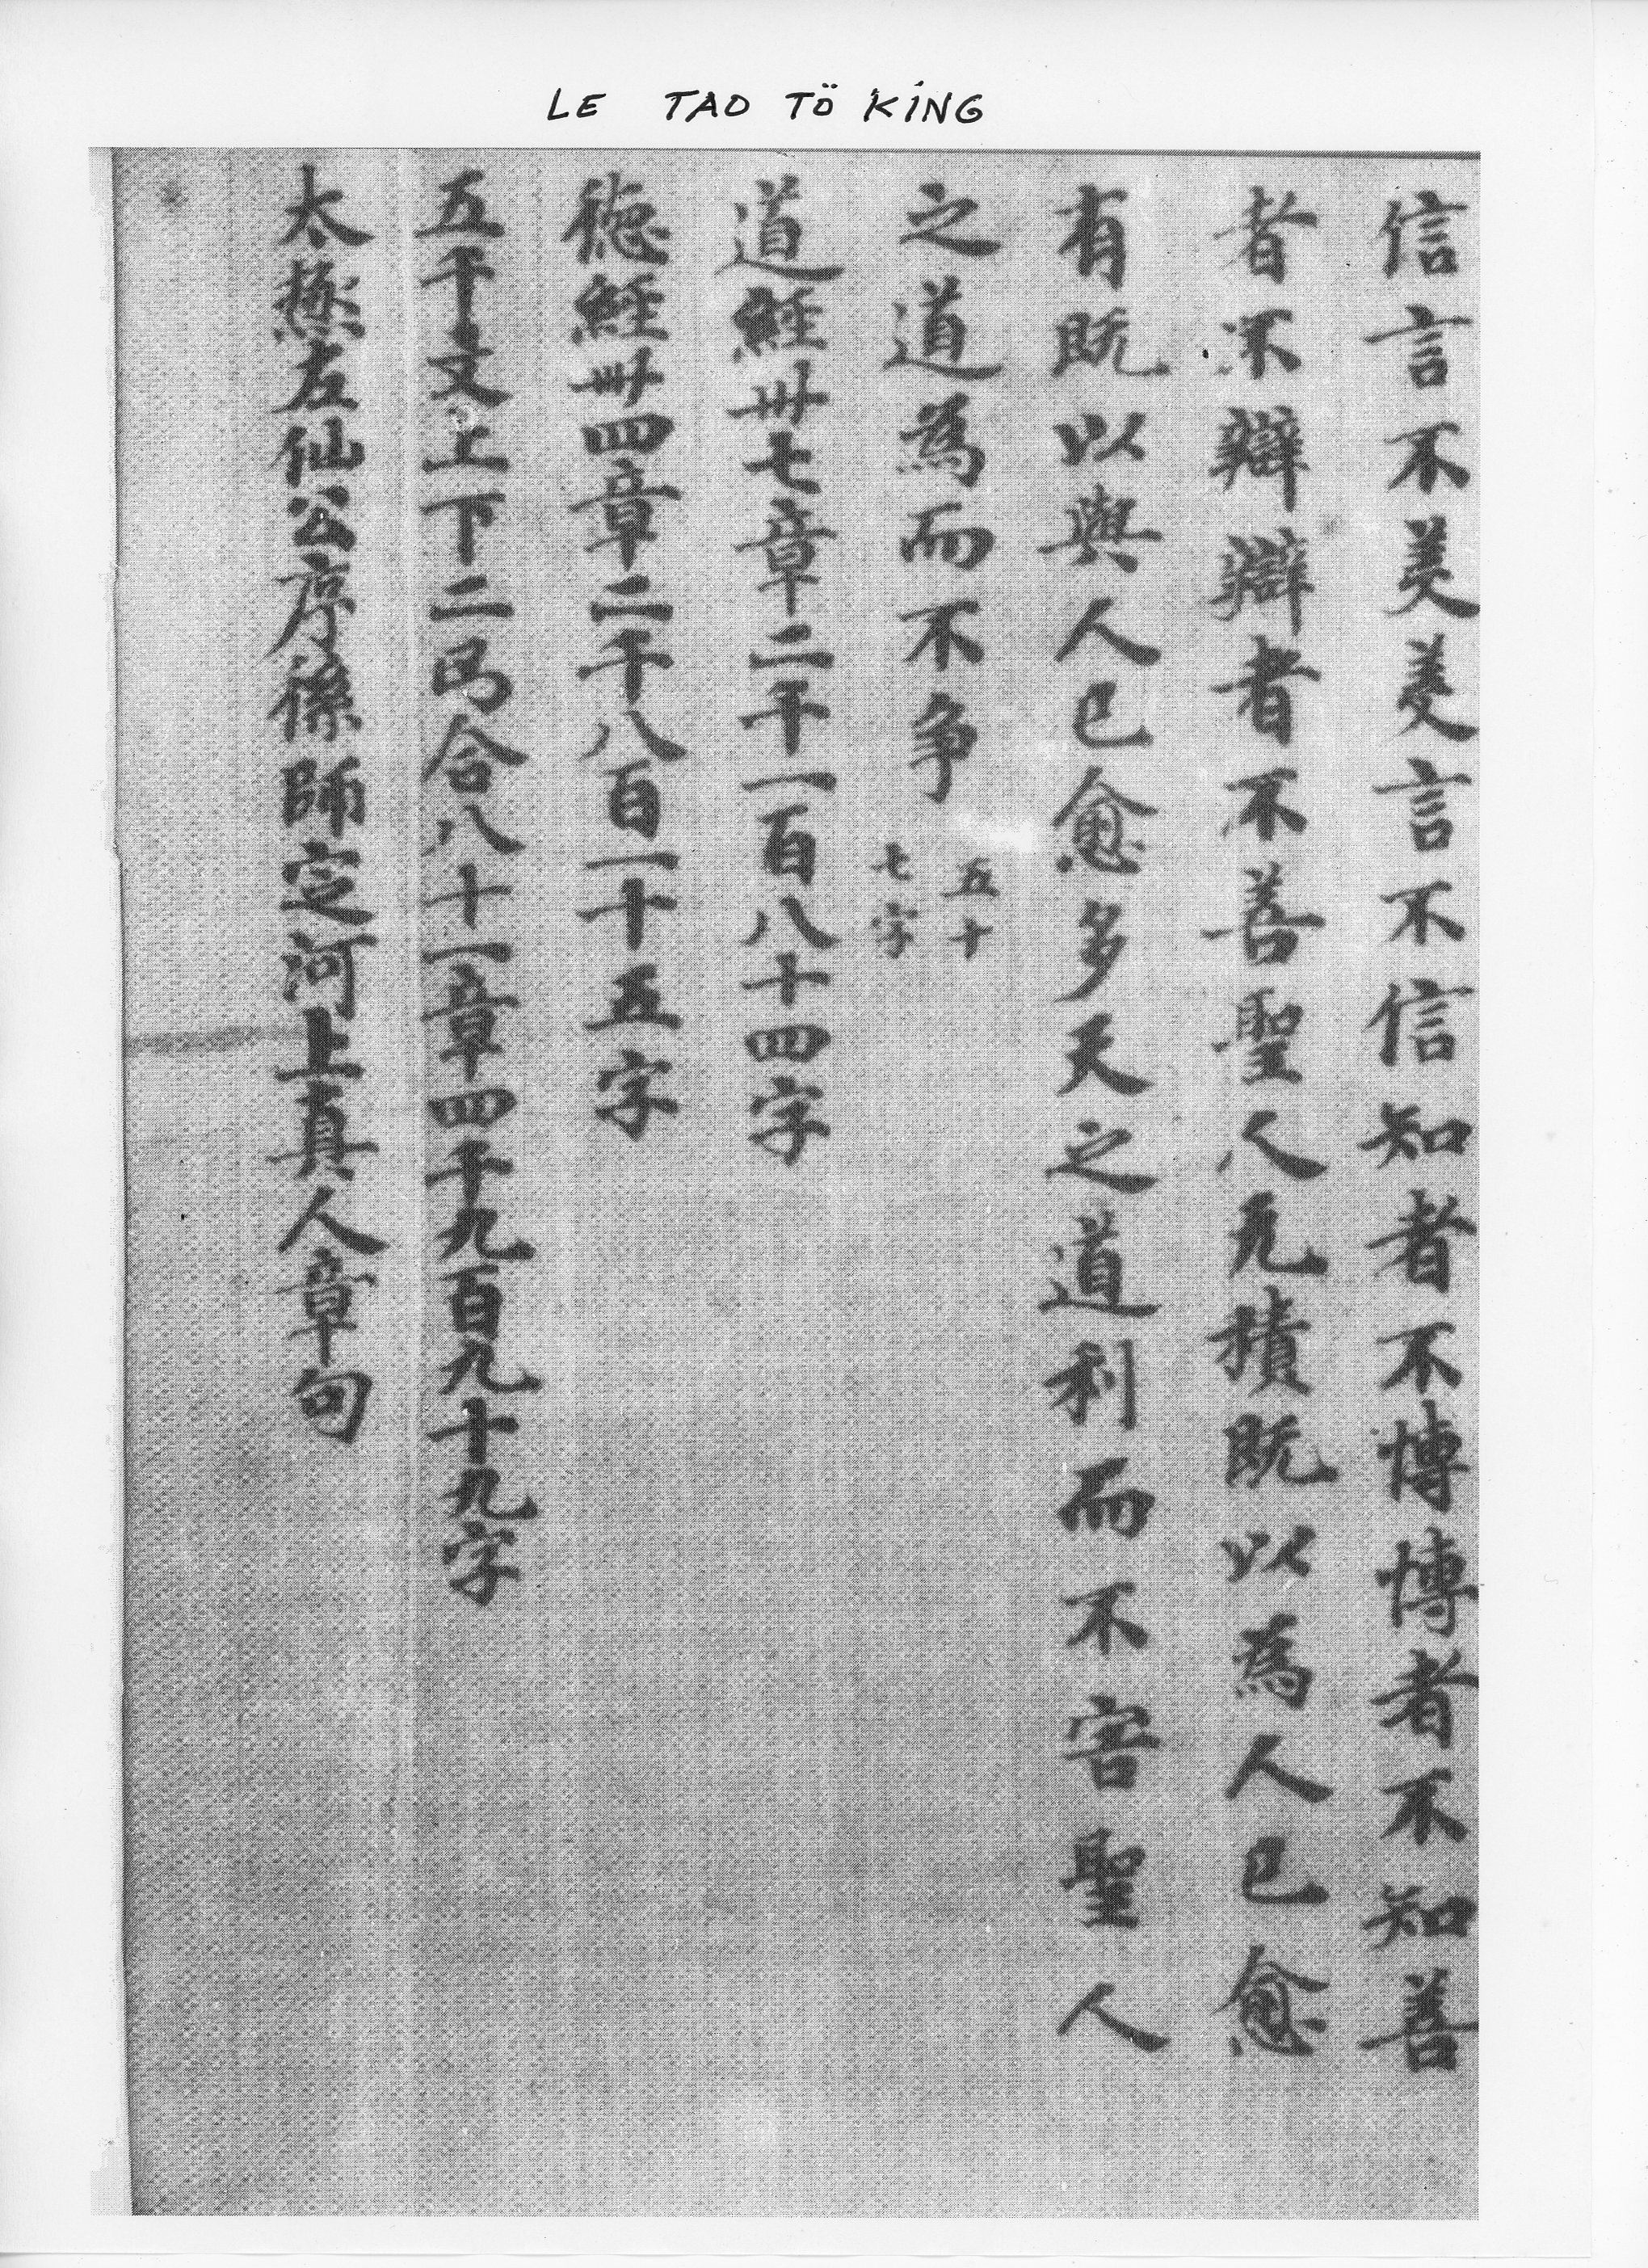 LE TAO TÖ KING
信言不美美言不信知者不博博者不知善
者不辯辯者不善聖人无積既以為人已愈
有既以與人已愈多天之道利而不害聖人
之道為而不争五十七字
道經卅七章二千一百八十四字
德經卌四章二千八百一十五字
五千文上下二弓合八十一章四千九百九十九字
太極左仙公序係師定河上真人章句